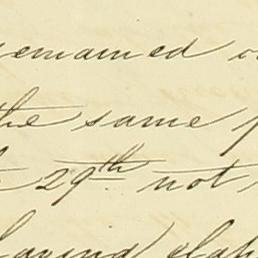 remained
the same
29th not
having elap